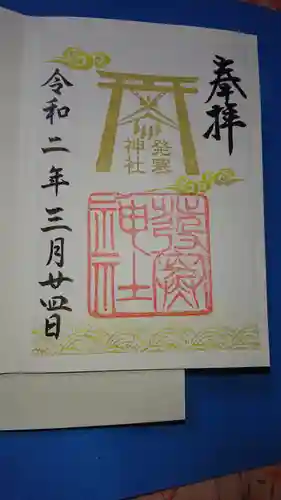 奉拝
発寒
神社
発寒
神社
令和二年三月廿四日